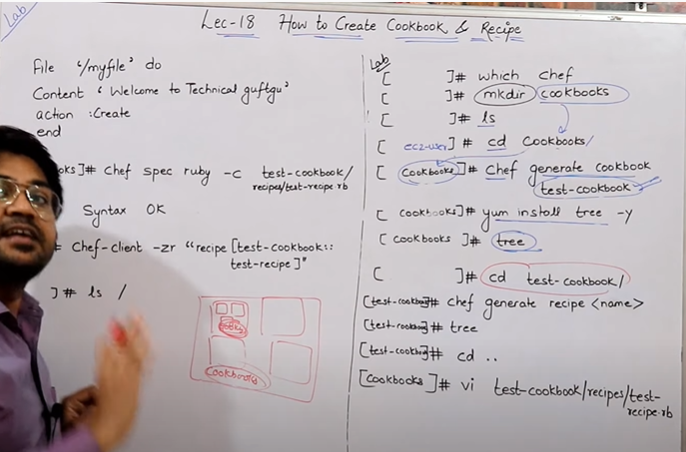 Lab
Lec-18 How to Create Cookbook & Recipe
File '/myfile' do
Content 'Welcome to Technical guftgu'
action :Create
end
ooks]# chef spec ruby -c test-cookbook/
recipes/test-recipe.rb
Syntax OK
# Chef-client -zr "recipe [test-cookbook::
test-recipe]"
]# ls /
Cookbooks
Lab
[ ]# which chef
[ ]# mkdir cookbooks
[ ]# ls
[ ec2-user] # cd Cookbooks/
[ Cookbooks]# Chef generate cookbook
test-cookbook
[ cookbooks]# yum install tree -y
[ cookbooks ]# tree
[ ]# cd test-cookbook/
[test-cookbook]# chef generate recipe <name>
[test-cookbook]# tree
[test-cookbook]# cd ..
[Cookbooks]# vi test-cookbook/recipes/test-
recipe.rb